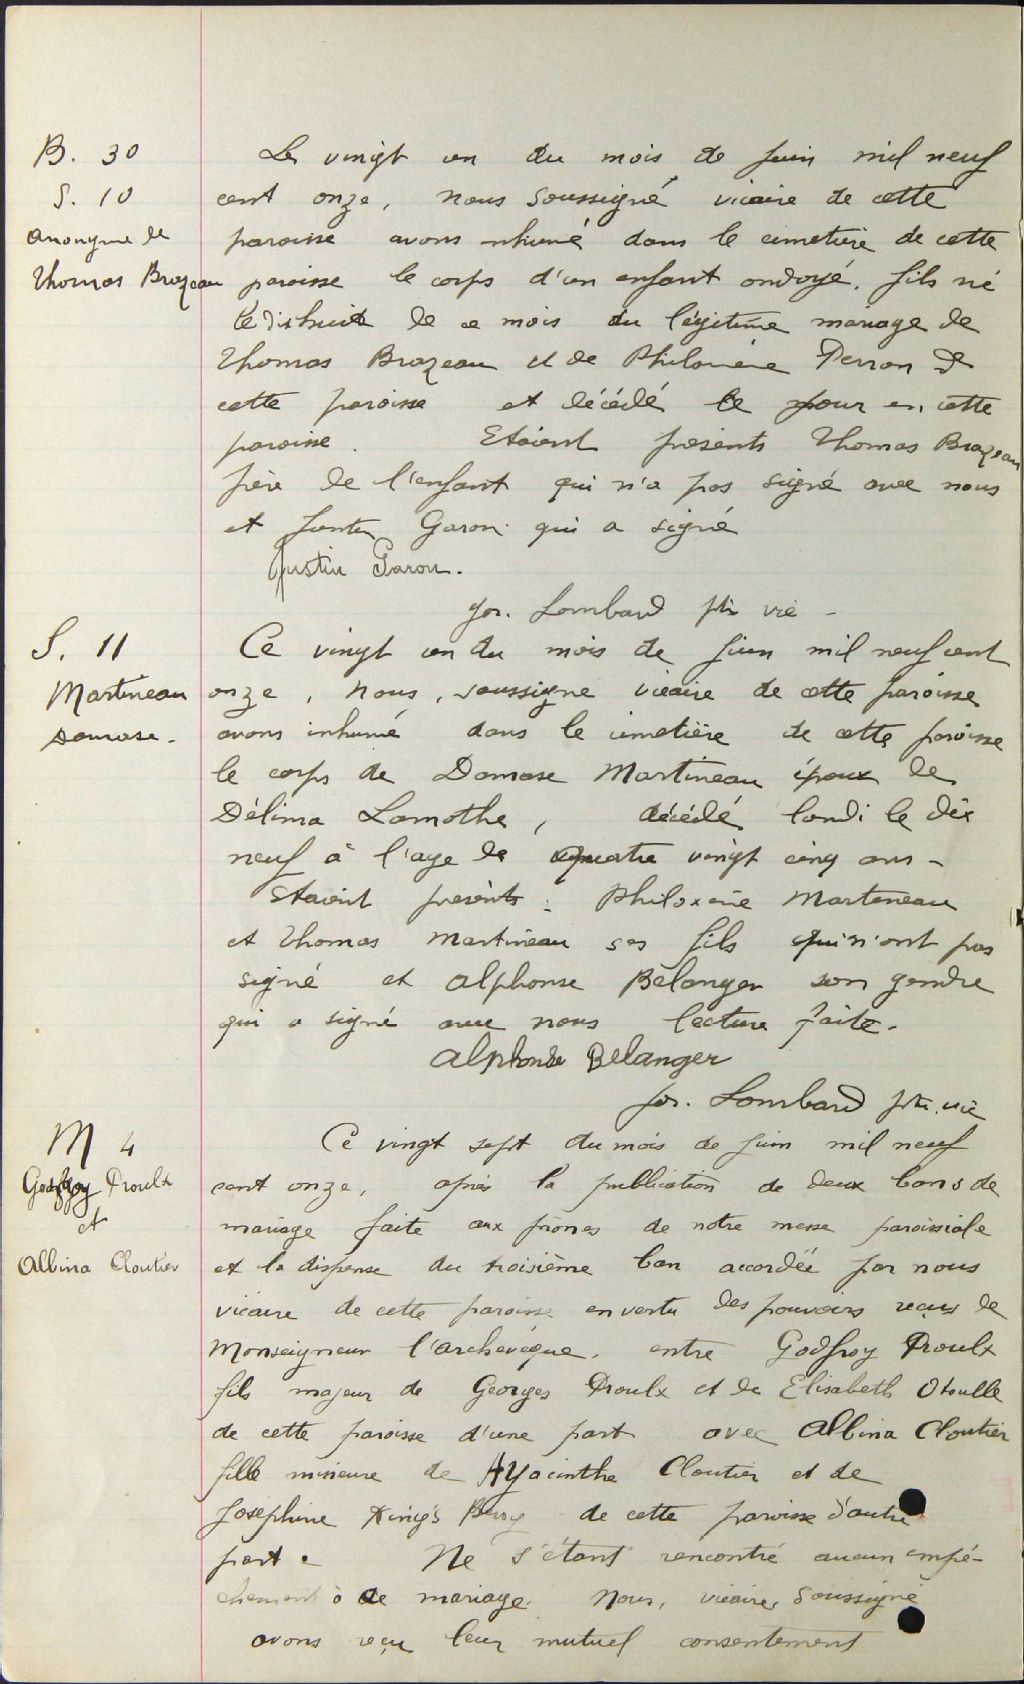 B. 30
S. 10
Anonyme de
Thomas Brazeau
Le vingt un du mois de juin mil neuf
cent onze, nous soussigné vicaire de cette
paroisse avons inhumé dans le cimetière de cette
paroisse le corps d'un enfant ondoyé. fils né
le dixhuit de ce mois du légitime mariage de
Thomas Brazeau et de Philomène Perron de
cette paroisse et décédé le jour en cette
paroisse. Etaient présents Thomas Brazeau
père de l'enfant qui n'a pas signé avec nous
et Justin Garon qui a signé
Justin Garon.
Jos. Lombard ptr vic -
S. 11
Martineau
Damase.
Ce vingt un du mois de juin mil neuf cent
onze, nous, soussigné vicaire de cette paroisse
avons inhumé dans le cimetière de cette paroisse
le corps de Damase Martineau époux de
Délima Lamothe, décédé lundi le dix
neuf à l'age de quatre vingt cinq ans -
Etaient présents : Philoxène Martineau
et Thomas Martineau ses fils qui n'ont pas
signé et Alphonse Bélanger son gendre
qui a signé avec nous lecture faite.
Alphonse Bélanger
Jos. Lombard ptr. vic
M 4
Godfroy Proulx
et
Albina Cloutier
Ce vingt sept du mois de juin mil neuf
cent onze, après la publication de deux bans de
mariage faite aux prônes de notre messe paroissiale
et la dispense du troisième ban accordée par nous
vicaire de cette paroisse en vertu des pouvoirs reçus de
Monseigneur l'archevêque, entre Godfroy Proulx
fils majeur de Georges Proulx et de Elisabeth Otoulle
de cette paroisse d'une part avec Albina Cloutier
fille mineure de Hyacinthe Cloutier et de
Joséphine King's Bury de cette paroisse d'autre
part. Ne s'étant rencontré aucun empé-
chement à ce mariage. Nous, vicaire, soussigné
avons reçu leur mutuel consentement